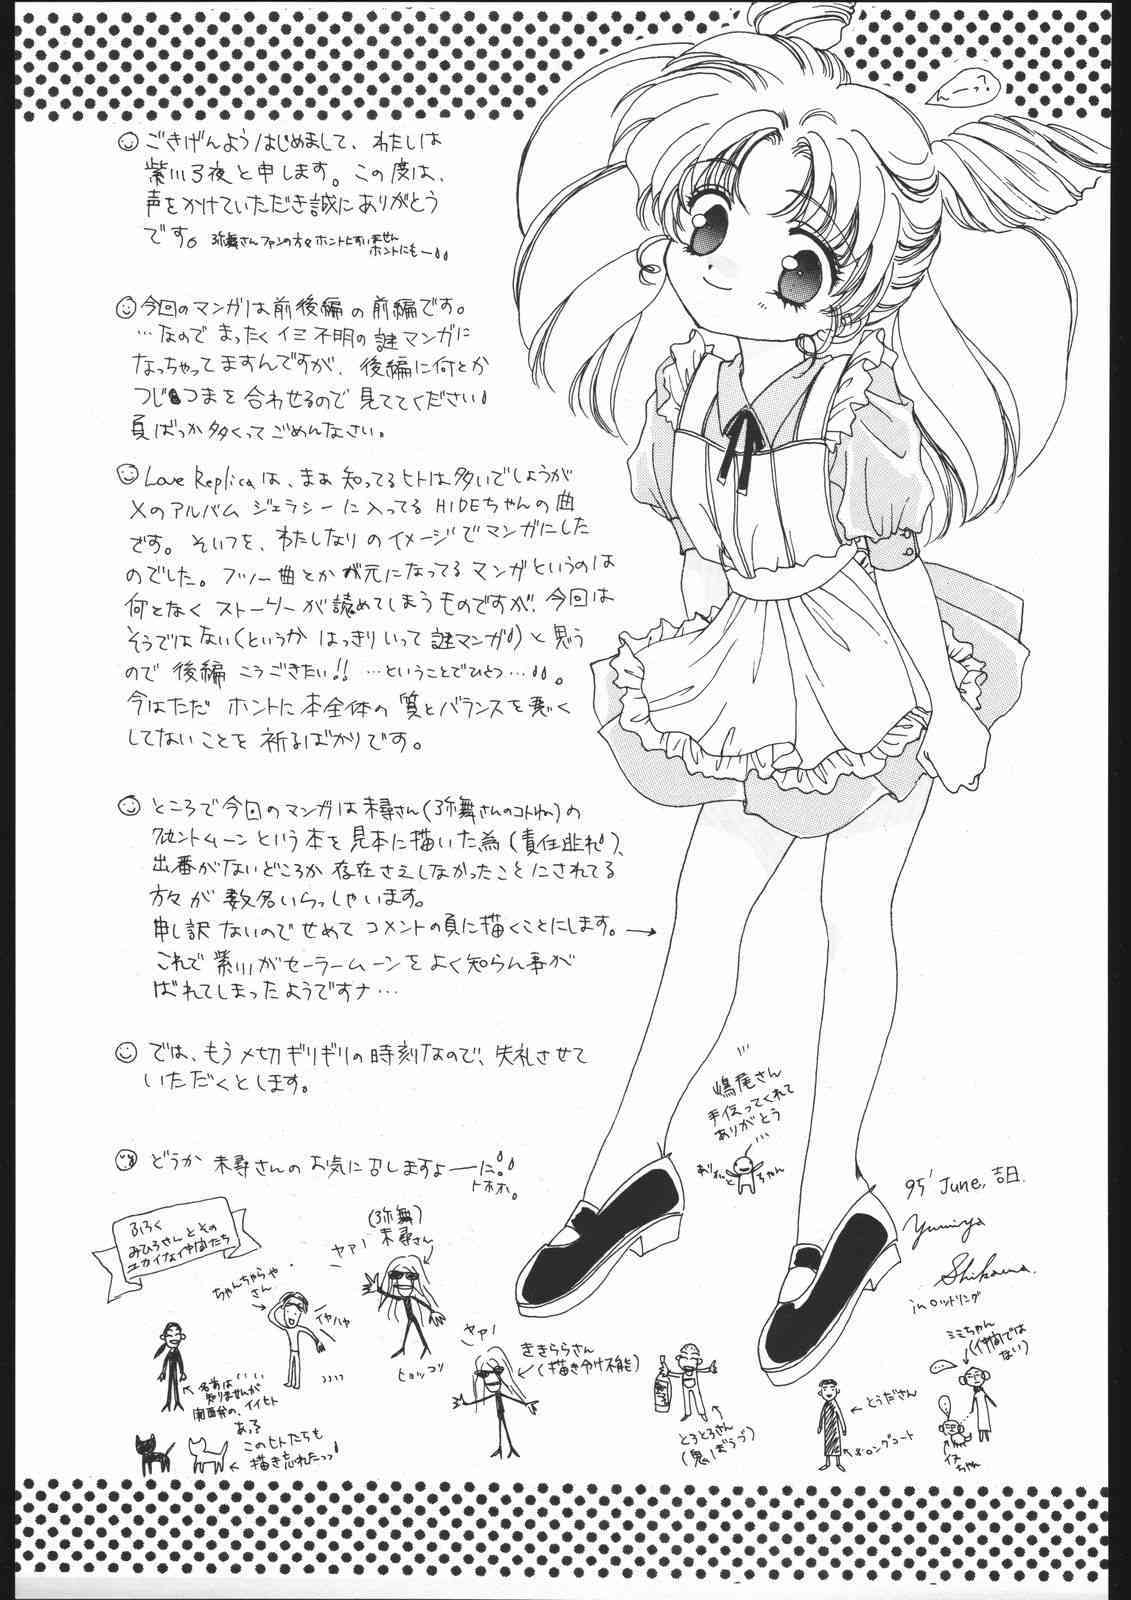 んーっ?
ごきげんようはじめまして、わたしは
紫川弓夜と申します。この度は、
声をかけていただき誠にありがとう
です。弥舞さんファンの方々ホントにすいません
ホントにもー
今回のマンガは前後編の前編です。
…なのでまったくイミ不明の謎マンガに
なっちゃってますんですが、後編に何とか
つじつまを合わせるので見ててください
頁ばっか多くってごめんなさい。
Love Replicaは、まぁ知ってるヒトは多いでしょうが
Xのアルバム ジェラシーに入ってるHIDEちゃんの曲
です。そいつを、わたしなりのイメージでマンガにした
のでした。フツー曲とかが元になってるマンガというのは
何となくストーリーが読めてしまうものですが、今回は
そうではない(というかはっきりいって謎マンガ)と思う
ので後編こうごきたい!!…ということでひとつ…。
今はただホントに本全体の質とバランスを悪く
してないことを祈るばかりです。
ところで今回のマンガは未尋さん(弥舞さんのコトね)の
クレセントムーンという本を見本に描いた為(責任逃れ)、
出番がないどころか存在さえしなかったことにされてる
方々が数名いらっしゃいます。
申し訳ないのでせめてコメントの頁に描くことにします。→
これで紫川がセーラームーンをよく知らん事が
ばれてしまったようですナ…
では、もう〆切ギリギリの時刻なので、失礼させて
いただくとします。
どうか未尋さんのお気に召しますよーに。
トホホ。
嶋尾さん
手伝ってくれて
ありがとう
95' June, 吉日.
Yumiya
Shikawa.
inロットリング
ふろく
みひろさんとその
ユカイな仲間たち
ちゃんちゃらや
さん
イヤハヤ
ヤァ!
(弥舞)
未尋さん
ヒョッコリ
ヤァ!
きききららさん
(描き分け不能)
名前は
知りませんが
関西弁の、イイヒト
あっる
このヒトたちも
描き忘れたっっ
とろとろさん
(鬼ころし)
とうださん
ロングコート
ミミちゃん
(仲間では
ない)
ちゃん